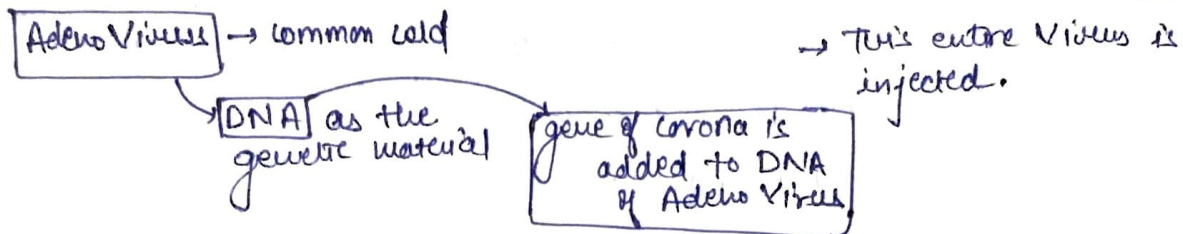 Adeno Virus → common cold
→ This entire Virus is
injected.
DNA as the
genetic material
gene of corona is
added to DNA
of Adeno Virus